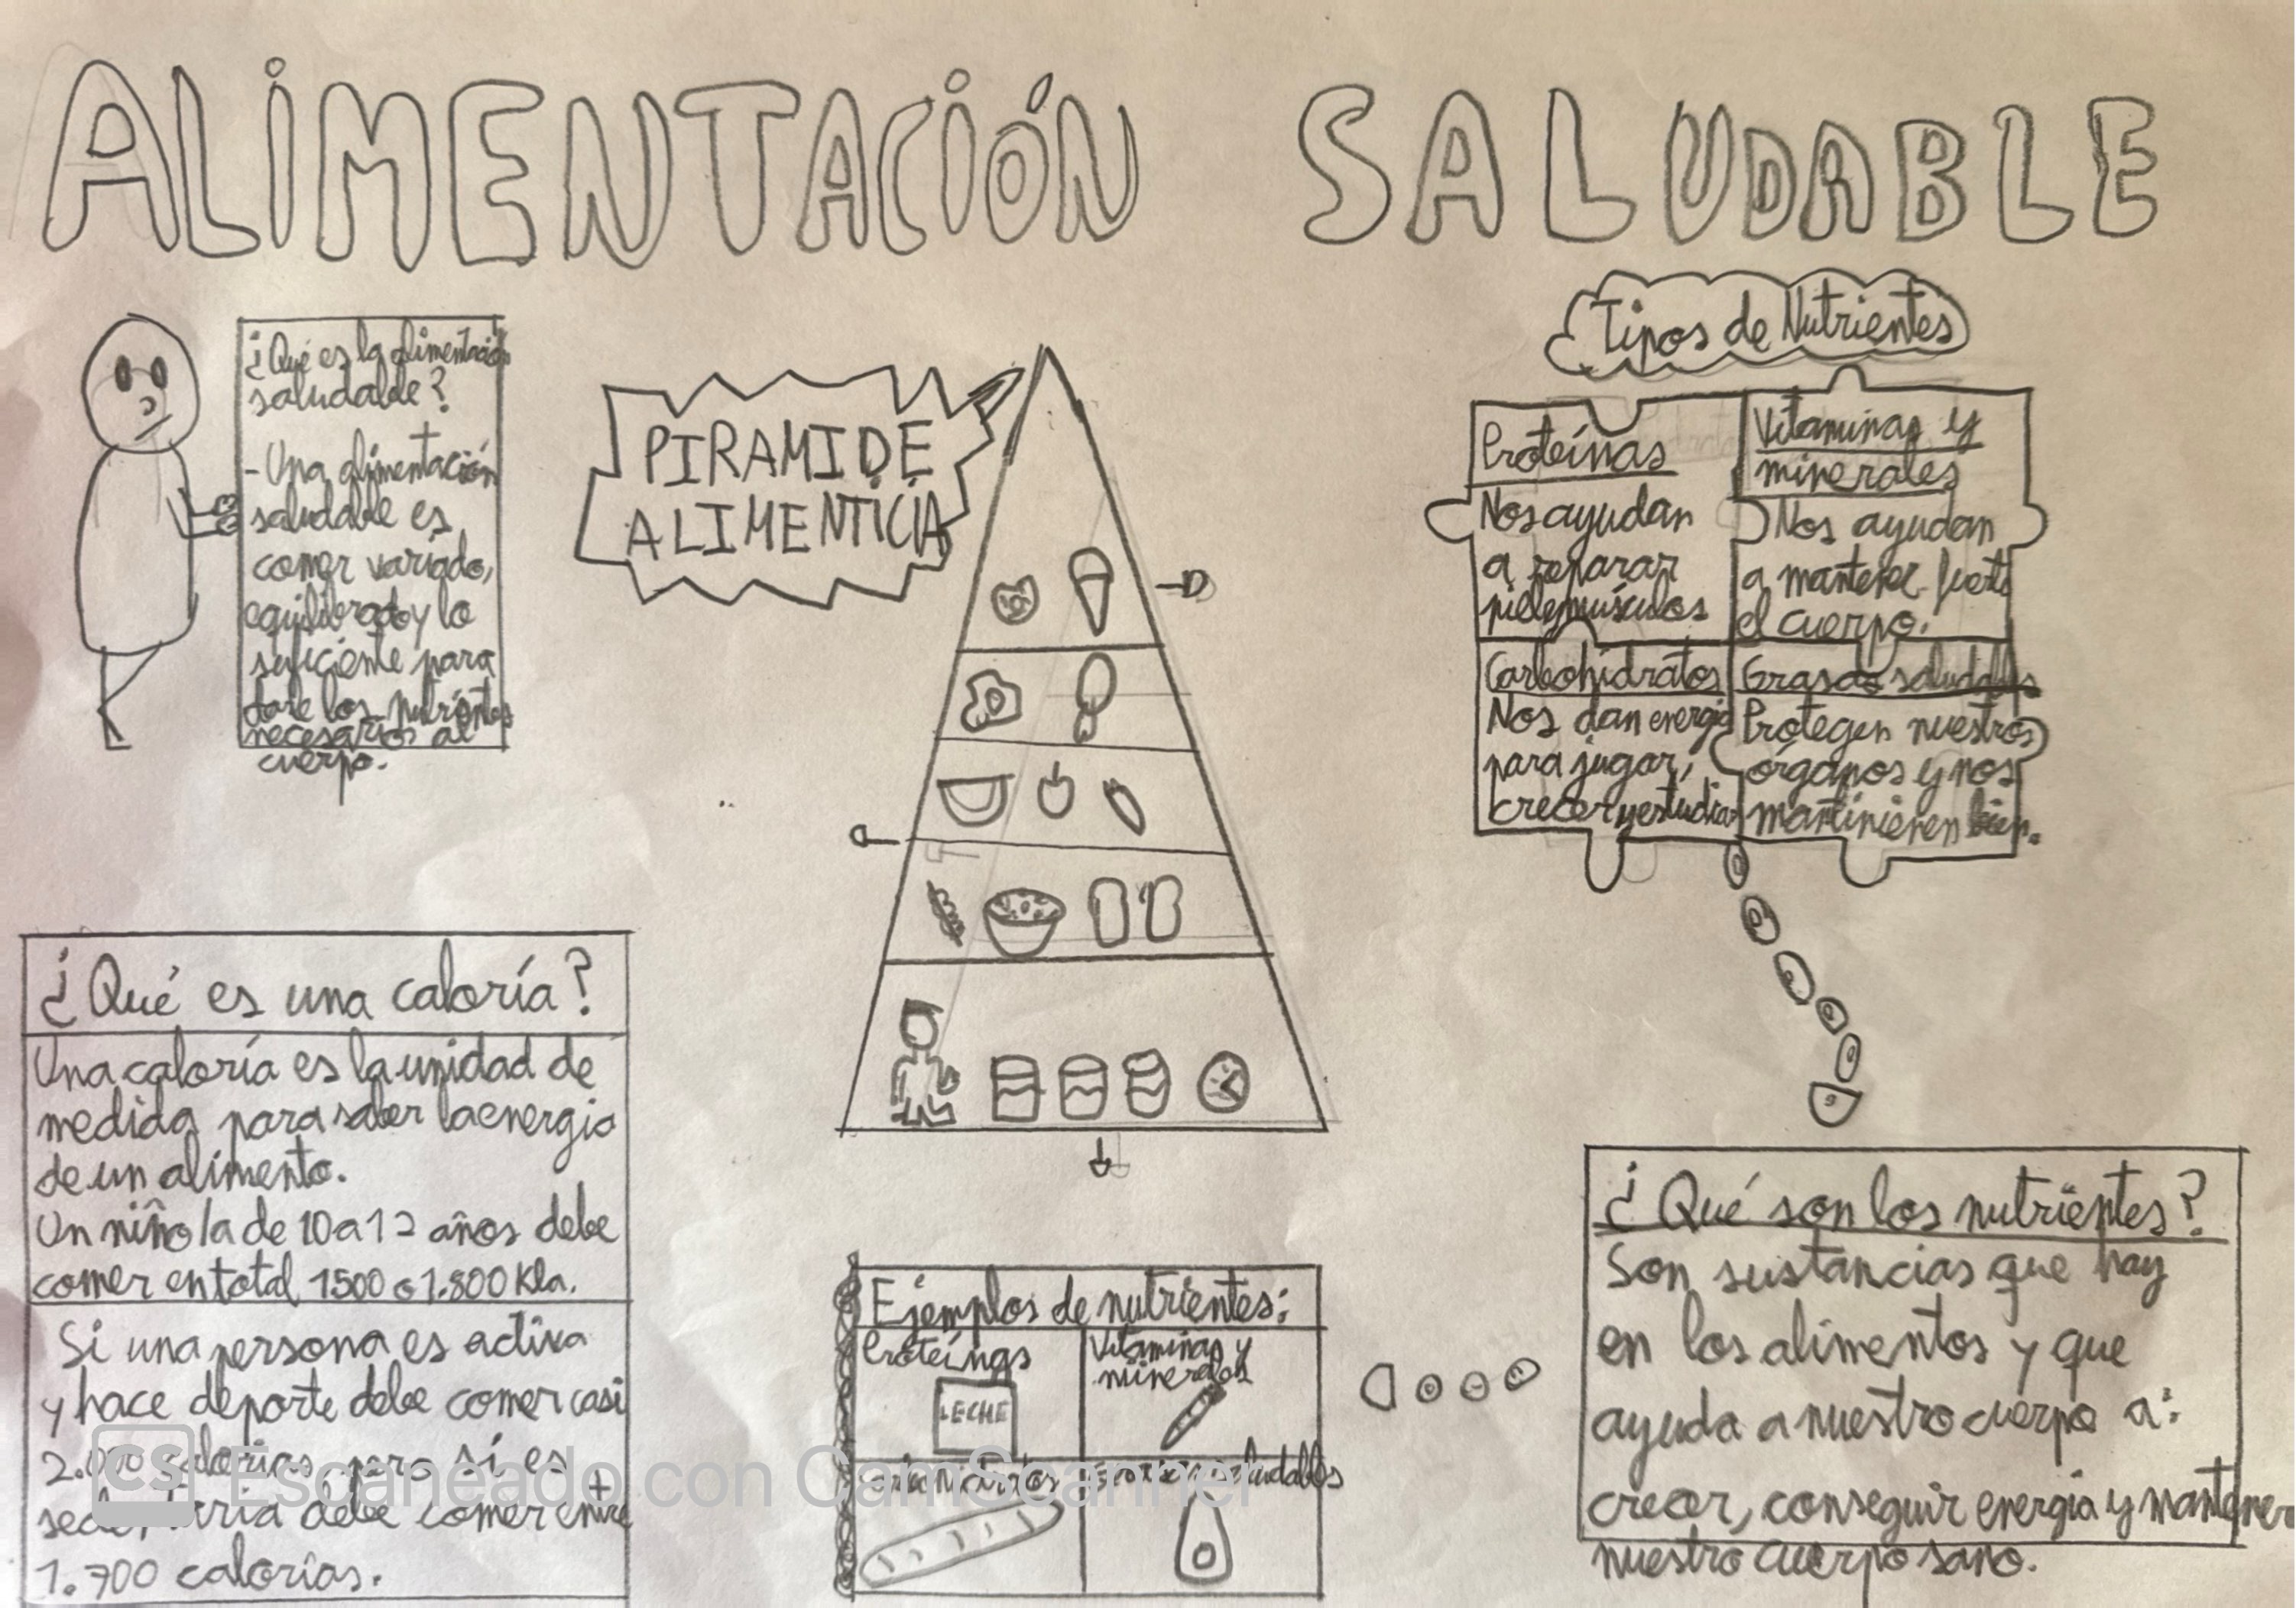 ALIMENTACIÓN SALUDABLE
¿Qué es la alimentación
saludable?
- Una alimentación
saludable es
comer variado,
equilibrado y lo
suficiente para
darle los nutrientes
necesarios al
cuerpo.
PIRAMIDE
ALIMENTICIA
Tipos de Nutrientes
Proteínas
Nos ayudan
a reparar
piel y músculos
Vitaminas y
minerales
Nos ayudan
a mantener fuerte
el cuerpo.
Carbohidratos
Nos dan energía
para jugar,
crecer y estudiar
Grasas saludables
Protegen nuestros
órganos y nos
mantinienen bien.
¿Qué es una caloría?
Una caloría es la unidad de
medida para saber la energia
de un alimento.
Un niño/a de 10 a 12 años debe
comer en total 1500 o 1.800 Kla.
Si una persona es activa
y hace deporte debe comer casi
2.000 calorias, pero sí es
sedentaria debe comer entre
1.700 calorías.
Ejemplos de nutrientes:
Proteínas
LECHE
Vitaminas y
minerales
saludables
¿Qué son los nutrientes?
Son sustancias que hay
en los alimentos y que
ayuda a nuestro cuerpo a:
crecer, conseguir energía y mantener
nuestro cuerpo sano.
CS Escaneado con CamScanner